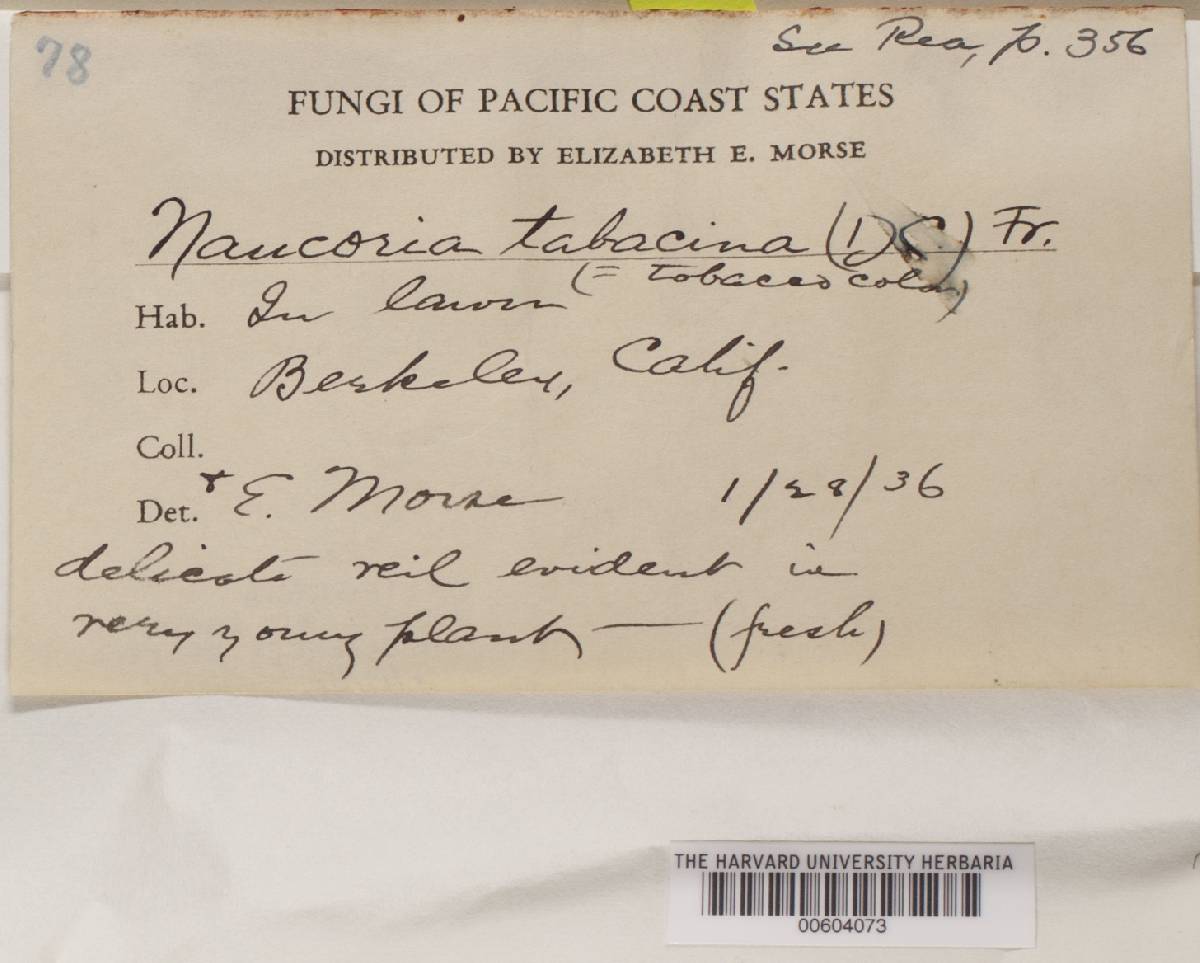 78
See Rea, p. 356
FUNGI OF PACIFIC COAST STATES
DISTRIBUTED BY ELIZABETH E. MORSE
Naucoria tabacina (DC.) Fr.
(= tobacco color)
Hab. In lawn
Loc. Berkeley, Calif.
Coll.
Det. + E. Morse 1/28/36
delicate veil evident in
very young plant — (fresh)
THE HARVARD UNIVERSITY HERBARIA
00604073